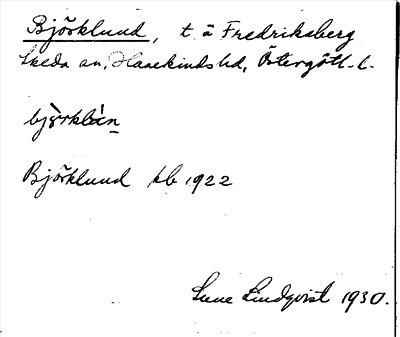 Björklund, t. ä Fredriksberg
Skeda sn, Hanekinds hd, Östergötl. l.
björklun
Björklund kb 1922
Sune Lindqvist 1930.